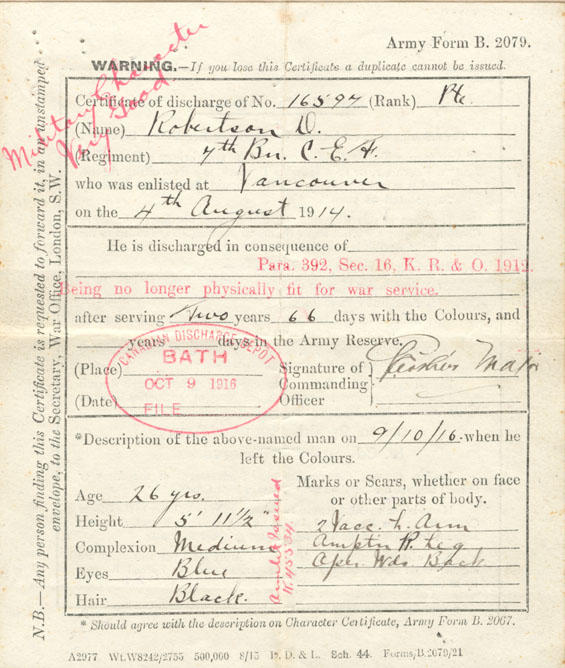 Army Form B. 2079.
WARNING.—If you lose this Certificate a duplicate cannot be issued.
Military Character
Very Good
Certificate of discharge of No. 16597 (Rank) Pte
(Name) Robertson D.
(Regiment) 7th Bn. C. E. F.
who was enlisted at Vancouver
on the 4th August 1914.
He is discharged in consequence of
Para. 392, Sec. 16, K. R. & O. 1912.
Being no longer physically fit for war service.
after serving Two years 66 days with the Colours, and
years days in the Army Reserve.
CANADIAN DISCHARGE DEPOT
BATH
OCT 9 1916
FILE
(Place)
(Date)
Signature of
Commanding
Officer
Major
*Description of the above-named man on 9/10/16. when he
left the Colours.
Age 26 yrs.
Height 5' 11½"
Complexion Medium
Eyes Blue
Hair Black.
Marks or Scars, whether on face
or other parts of body.
2 Vacc. L. Arm
Amptn R. Leg
Oper Wds Back
* Should agree with the description on Character Certificate, Army Form B. 2067.
A2977 Wt.W8242/2755 500,000 8/15 D. D. & L. Sch. 44. Forms/B.2079/21
N.B.—Any person finding this Certificate is requested to forward it, in an unstamped
envelope, to the Secretary, War Office, London, S.W.